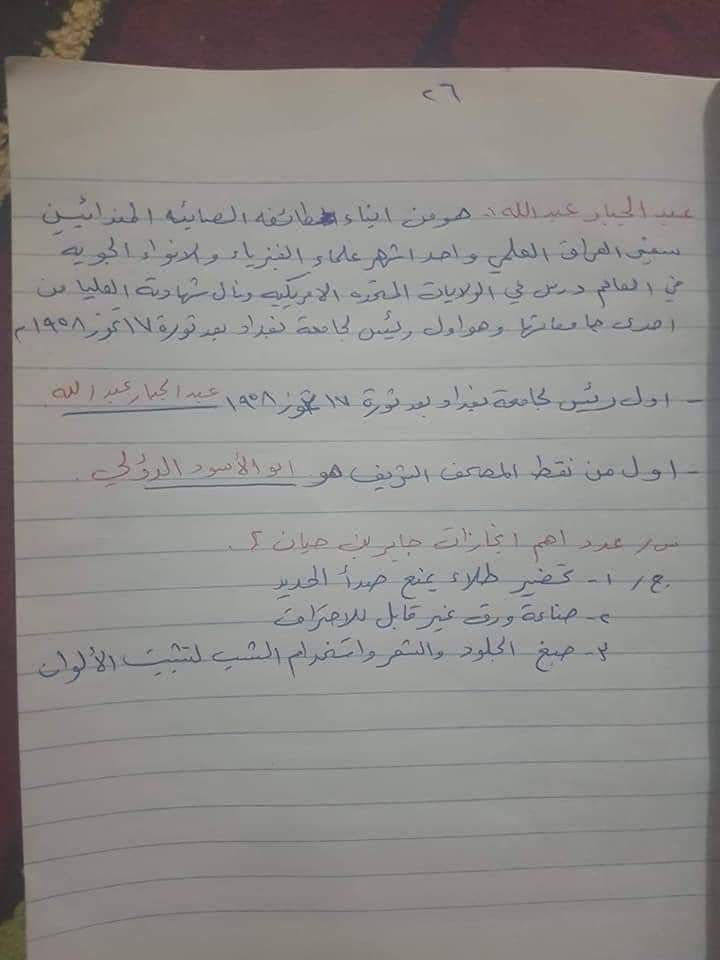 ٢٦
عبد الجبار عبد الله :- هو من ابناء طائفه الصابئه المندائيين
العراق العلمي واحد اشهر علماء الفيزياء والانواء الجويه
في العالم درس في الولايات المتحده الامريكيه ونال شهادته العليا من
احدى جامعاتها وهو اول رئيس لجامعة بغداد بعد ثورة ١٧ تموز ١٩٥٨م
- اول رئيس لجامعة بغداد بعد ثورة ١٧ تموز ١٩٥٨ عبد الجبار عبد الله
- اول من نقط المصحف الشريف هو ابو الأسود الدؤلي .
س/ عدد اهم انجازات جابر بن حيان ؟.
ج/ ١- تحضير طلاء يمنع صدأ الحديد
٢- صناعة ورق غير قابل للاحتراق
٣- صبغ الجلود والشعر واستخدام الشب لتثبيت الألوان